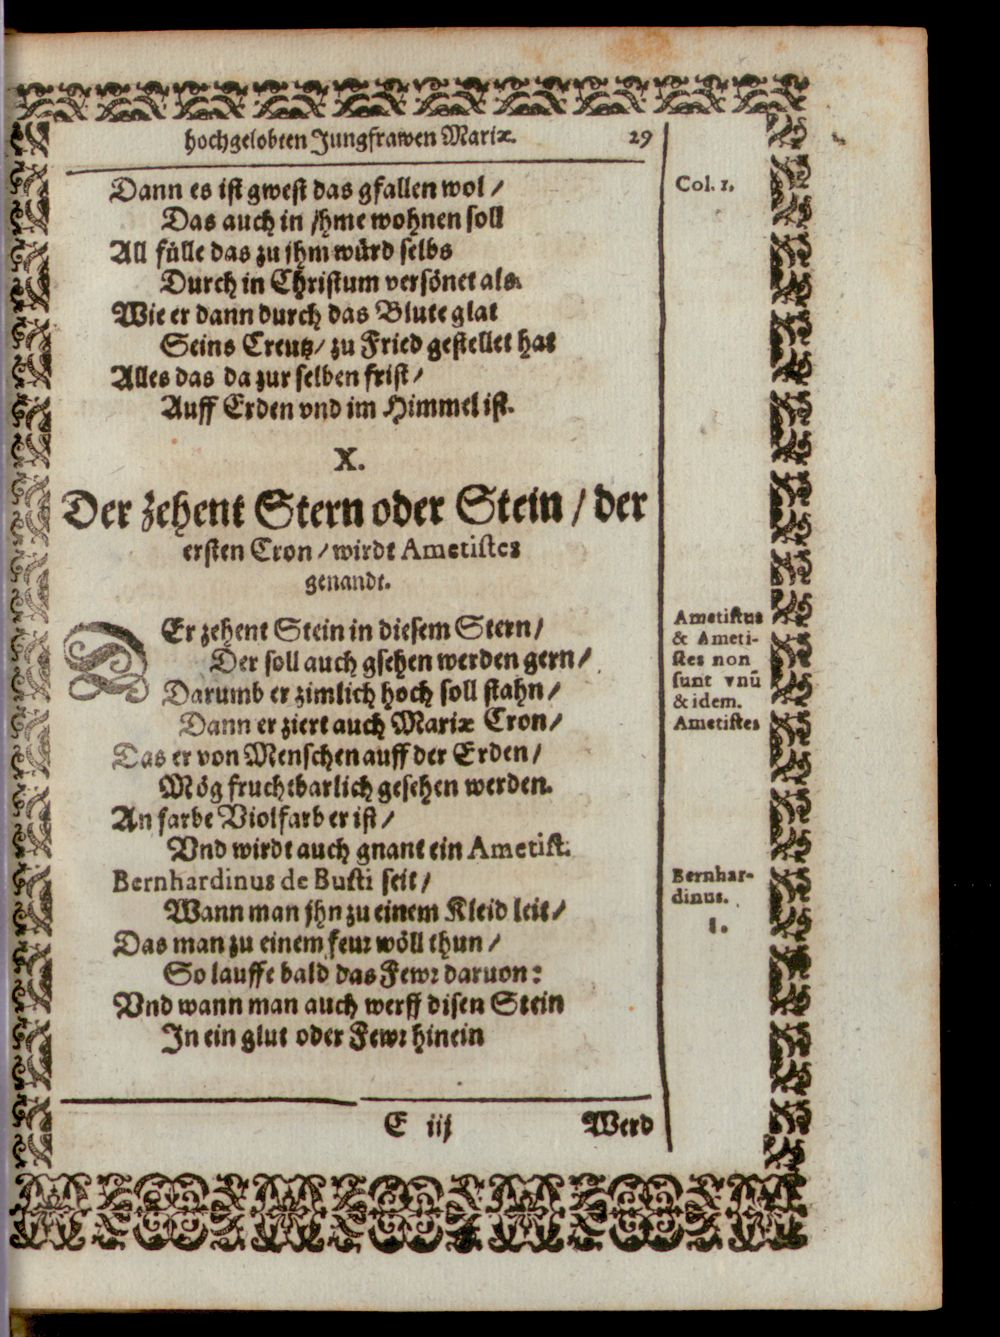 hochgelobten Jungfrawen Mariæ. 29
Dann es ist gwest das gfallen wol /
Col. 1.
Das auch in jhme wohnen soll
All fülle das zu jhm würd selbs
Durch in Christum versönet als.
Wie er dann durch das Blute glat
Seins Creutz / zu Fried gestellet hat
Alles das da zur selben frist /
Auff Erden vnd im Himmel ist.
X.
Der zehent Stern oder Stein / der
ersten Cron / wirdt Ametistes
genandt.
DEr zehent Stein in diesem Stern /
Der soll auch gsehen werden gern /
Darumb er zimlich hoch soll stahn /
Dann er ziert auch Mariæ Cron /
Das er von Menschen auff der Erden /
Mög fruchtbarlich gesehen werden.
An farbe Violfarb er ist /
Vnd wirdt auch gnant ein Ametist.
Bernhardinus de Busti seit /
Wann man jhn zu einem Kleid leit /
Das man zu einem feur wöll thun /
So lauffe bald das Fewr daruon:
Vnd wann man auch werff disen Stein
In ein glut oder Fewr hinein
Ametistus
& Ameti-
stes non
sunt vnū
& idem.
Ametistes
Bernhar-
dinus.
1.
E iij Werd